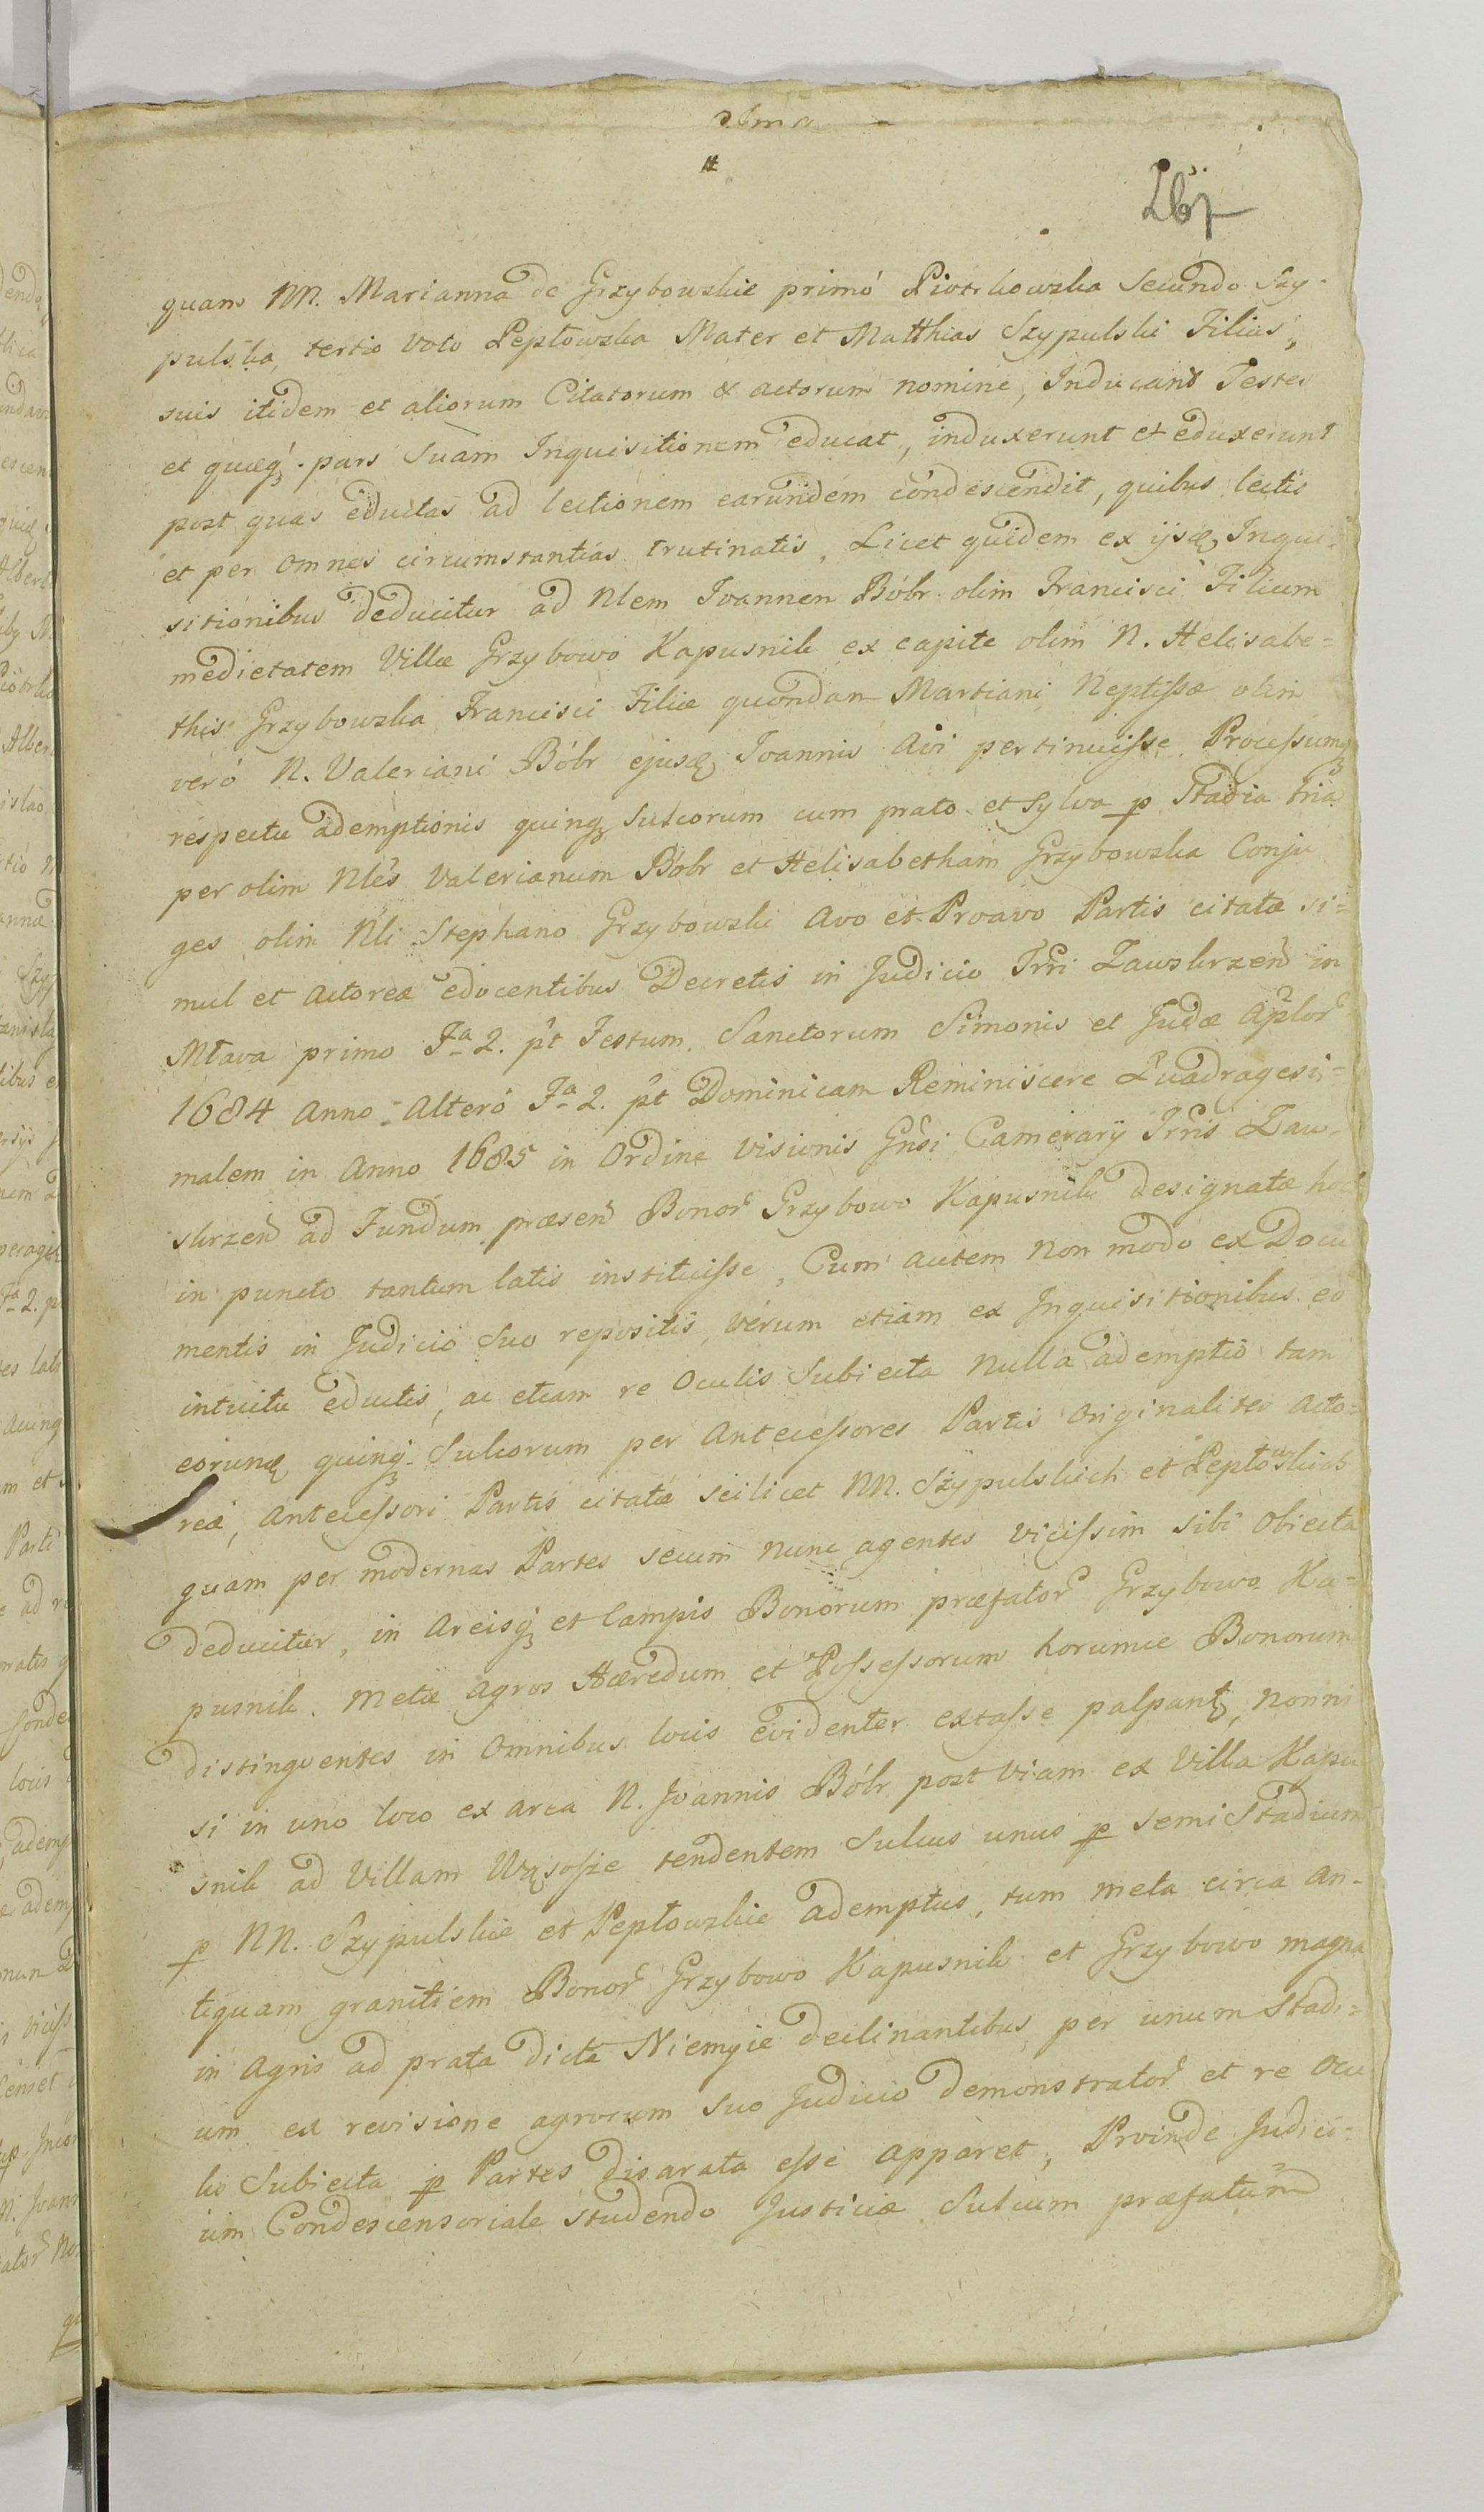 quam NN. Marianna de Grzybowskie primó Piotrkowska Secundo Szy-
pulska, tertio Voto Peptowska Mater et Matthias Szypulski Filius,
suis itidem et aliorum Citatorum & actorum nomine, Inducant Testes
et quæq₃ pars Suam Inquisitionem educat, induxerunt et eduxerunt
post quas eductas ad lectionem earundem condescendit, quibus lectis
et per omnes circumstantias trutinatis, Licet quidem ex ijsd. Inqui-
sitionibus deducitur ad Nlem Joannem Bóbr olim Francisci Filium
medietatem Villæ Grzybowo Kapusnik ex capite olim N. Helisabe=
this Grzybowska Francisci Filiæ quondam Martiani Neptissæ olim
veró N. Valeriani Bóbr ejusd. Joannis Avi pertinuisse, Processumq₃
respectu ademptionis quinq₃ Sulcorum cum prato et sylva p Stadia tria
per olim Nles Valerianum Bóbr et Helisabetham Grzybowska Conju
ges olim Nli Stephano Grzybowski Avo et Proavo Partis citatæ si=
mul et Actoreæ edocentibus Decretis in Judicio Trri Zawskrzen in
Mława primo Fa 2. pt Festum Sanctorum Simonis et Judæ Aplor
1684 Anno Alteró Fa 2. pt Dominicam Reminiscere Quadragesi=
malem in Anno 1685 in Ordine Visionis Gnsi Camerarij Trris Zaw-
skrzen ad Fundum præsen Bonor Grzybowo Kapusnik designatæ hoc
in puncto tantum latis instituisse, Cum autem non modo ex Docu
mentis in Judicio Suo repositis, verum etiam ex Inquisitionibus eo
intuitu eductis, ac etiam re Oculis Subiecta nulla ademptio tam
eorund. quinq₃ Sulcorum per Antecessores Partis Originaliter Acto=
reæ, Antecessori Partis citatæ scilicet NN. Szypulskich et Peptowskich
quam per modernas Partes secum nunc agentes vicissim sibi Obiecta
deducitur, in Areisq₃ et Campis Bonorum præfator Grzybowo Ka=
pusnik. Metæ agros Hæredum et Possessorum horumce Bonorum
distinguentes in Omnibus locis evidenter extasse palpant, nonni
si in uno loco ex area N. Joannis Bóbr post Viam ex Villa Kapu
snik ad Villam Wąsosze tendentem Sulcus unus p semi Stadium
p NN. Szypulskie et Peptowskie ademptus, tum meta circa An-
tiquam granitiem Bonor Grzybowo Kapusnik et Grzybowo magna
in Agris ad prata dicta Niemyie declinantibus per unum Stadi=
um ex revisione agrorum Suo Judicio demonstrator et re Ocu
lis Subiecta p Partes disarata esse apparet, Proinde Judici=
um Condescensoriale studendo Justiciæ Sulcum præfatum